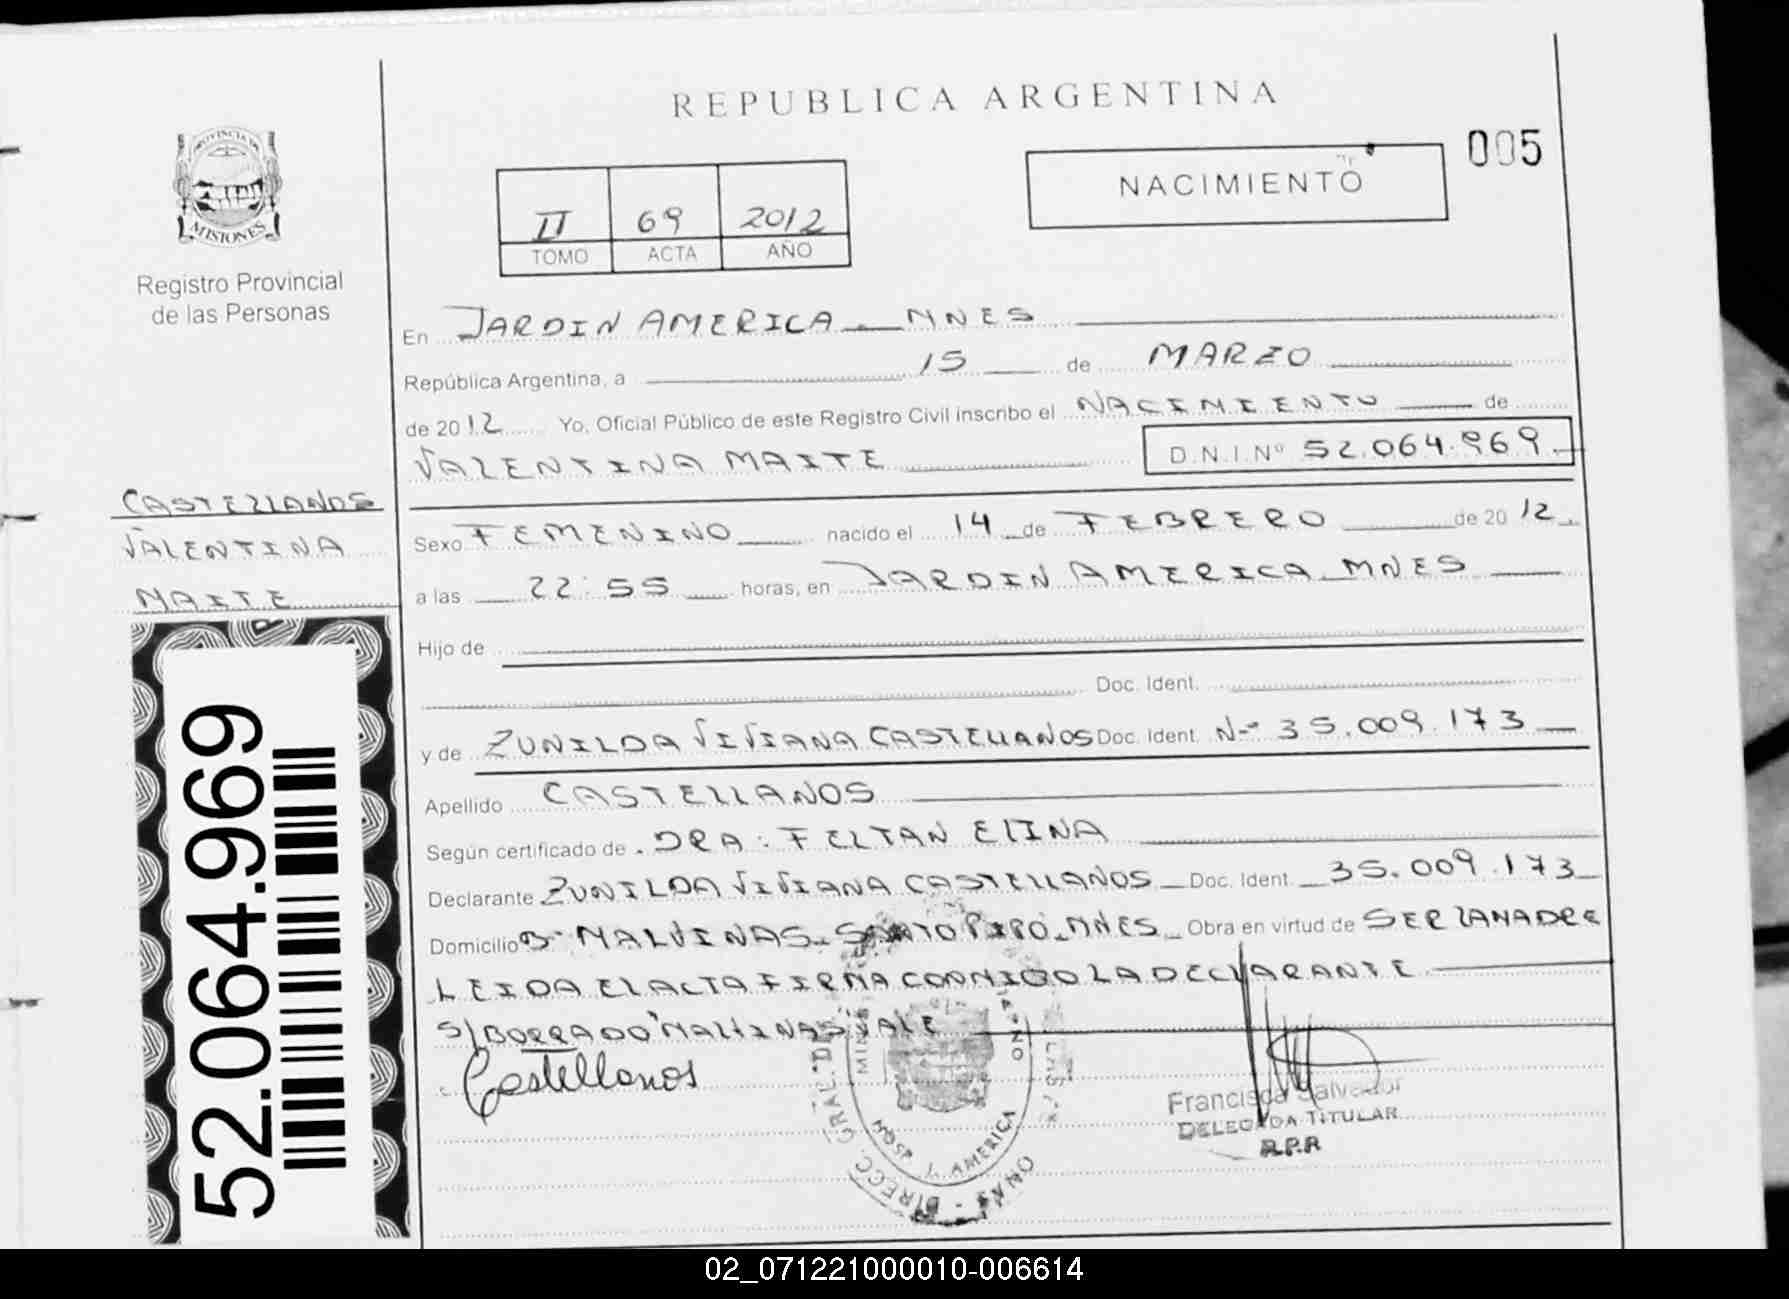 REPUBLICA ARGENTINA
005
NACIMIENTO
PROVINCIA DE
MISIONES
Registro Provincial
de las Personas
II 69 2012
TOMO ACTA AÑO
En JARDIN AMERICA MNES
República Argentina, a 15 de MARZO
de 2012 Yo, Oficial Público de este Registro Civil inscribo el NACIMIENTO de
VALENTINA MAITE D.N.I.Nº 52.064.969
CASTELLANOS
VALENTINA
MAITE
Sexo FEMENINO nacido el 14 de FEBRERO de 2012
a las 22:55 horas, en JARDIN AMERICA MNES
Hijo de
Doc. Ident.
y de ZUNILDA VIVIANA CASTELLANOS Doc. Ident. Nº 35.009.173
Apellido CASTELLANOS
Según certificado de DRA: FELTAN ELINA
Declarante ZUNILDA VIVIANA CASTELLANOS Doc. Ident. 35.009.173
Domicilio Bº MALVINAS SANTO PIPO MNES Obra en virtud de SER LA MADRE
LEIDA EL ACTA FIRMA CONMIGO LA DECLARANTE
S/BORRADO "MALVINAS VALE
Castellanos
52.064.969
Francisca Salvador
DELEGADA TITULAR
R.P.R
DIRECC. GRAL. DE
AMERICA
02_071221000010-006614